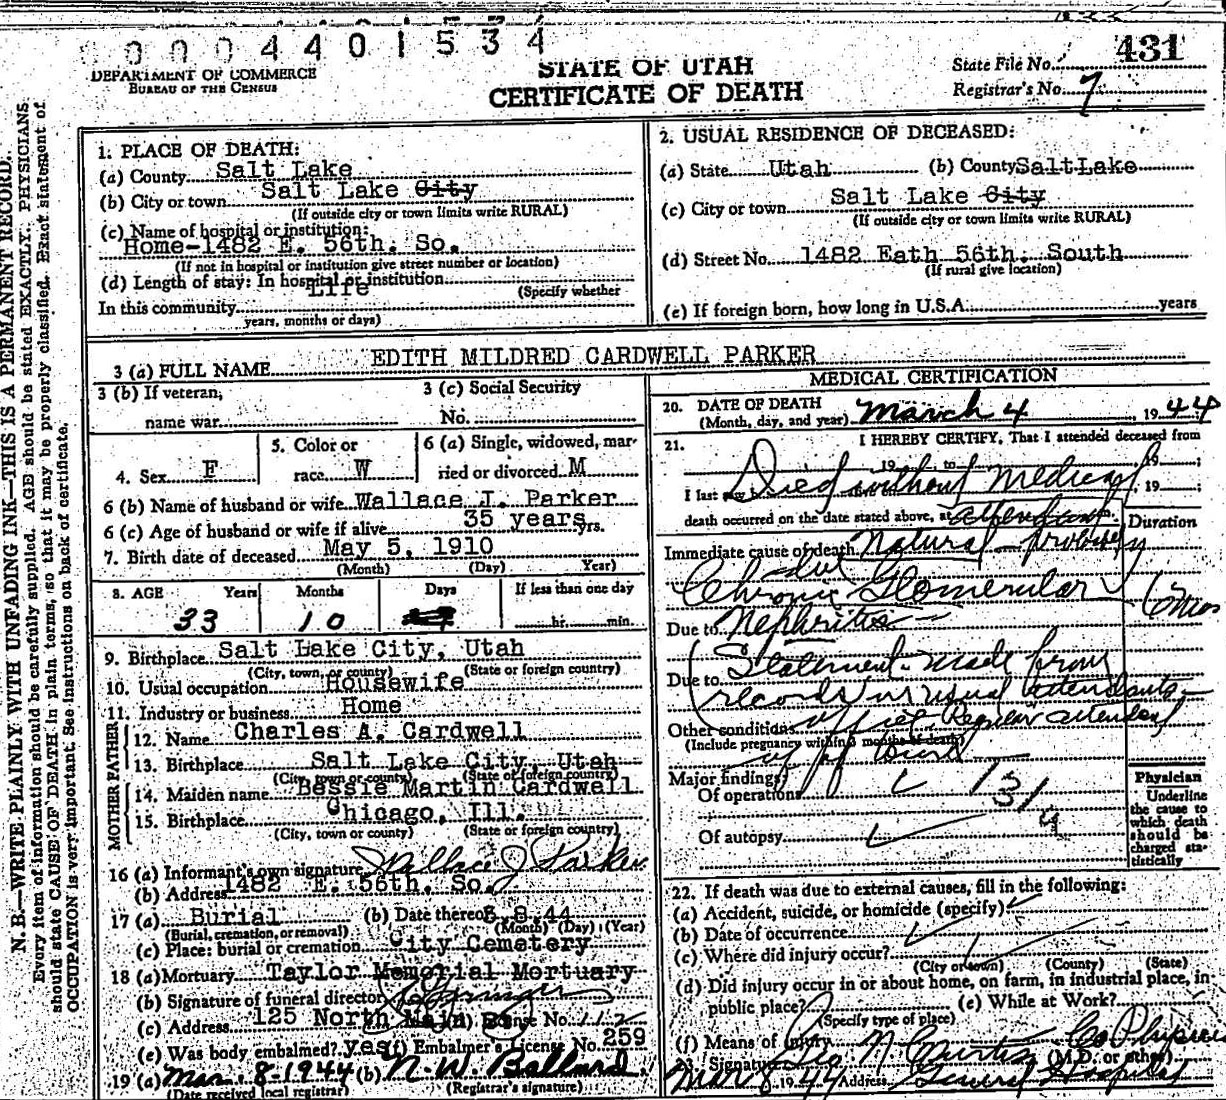 0004401534
DEPARTMENT OF COMMERCE
BUREAU OF THE CENSUS
STATE OF UTAH
CERTIFICATE OF DEATH
State File No. 431
Registrar's No. 7
N. B.—WRITE PLAINLY WITH UNFADING INK—THIS IS A PERMANENT RECORD.
Every item of information should be carefully supplied. AGE should be stated EXACTLY. PHYSICIANS
should state CAUSE OF DEATH in plain terms, so that it may be properly classified. Exact statement of
OCCUPATION is very important. See instructions on back of certificate.
1. PLACE OF DEATH:
(a) County Salt Lake
(b) City or town Salt Lake City
(If outside city or town limits write RURAL)
(c) Name of hospital or institution:
Home-1482 E. 56th. So.
(If not in hospital or institution give street number or location)
(d) Length of stay: In hospital or institution
Life (Specify whether
In this community
years, months or days)
2. USUAL RESIDENCE OF DECEASED:
(a) State Utah (b) County Salt Lake
(c) City or town Salt Lake City
(If outside city or town limits write RURAL)
(d) Street No. 1482 Eath 56th. South
(If rural give location)
(e) If foreign born, how long in U.S.A. years
3 (a) FULL NAME EDITH MILDRED CARDWELL PARKER
3 (b) If veteran, 3 (c) Social Security
name war No.
4. Sex F 5. Color or race W 6 (a) Single, widowed, married or divorced M
6 (b) Name of husband or wife Wallace J. Parker
6 (c) Age of husband or wife if alive 35 years yrs.
7. Birth date of deceased May 5, 1910
(Month) (Day) Year)
8. AGE Years Months Days If less than one day
33 10 hr. min.
9. Birthplace Salt Lake City, Utah
(City, town, or county) (State or foreign country)
10. Usual occupation Housewife
11. Industry or business Home
FATHER
12. Name Charles A. Cardwell
13. Birthplace Salt Lake City, Utah
(City, town or county) (State or foreign country)
MOTHER
14. Maiden name Bessie Martin Cardwell
15. Birthplace Chicago, Ill.
(City, town or county) (State or foreign country)
16 (a) Informant's own signature Wallace J Parker
(b) Address 1482 E. 56th. So.
17 (a) Burial (b) Date thereof 3.8.44
(Burial, cremation, or removal) (Month) (Day) (Year)
(c) Place: burial or cremation City Cemetery
18 (a) Mortuary Taylor Memorial Mortuary
(b) Signature of funeral director
(c) Address 125 North Main License No. 112
(e) Was body embalmed? yes (f) Embalmer's License No. 259
19 (a) Mar. 8-1944 (b) N. W. Ballard
(Date received local registrar) (Registrar's signature)
MEDICAL CERTIFICATION
20. DATE OF DEATH
(Month, day, and year) March 4, 1944
21. I HEREBY CERTIFY, That I attended deceased from
19 to 19
I last saw 19
Died without medical
death occurred on the date stated above, at attendant m.
Duration
Immediate cause of death Natural - probably
due
Chronic Glomerular 6 mos
Due to Nephritis
Due to Statement made from
records in usual attendants
office Regular attendant
Other conditions
(Include pregnancy within 3 months of death)
out of town
Major findings:
Of operations
131
Of autopsy
Physician
Underline
the cause to
which death
should be
charged sta-
tistically
22. If death was due to external causes, fill in the following:
(a) Accident, suicide, or homicide (specify)
(b) Date of occurrence
(c) Where did injury occur?
(City or town) (County) (State)
(d) Did injury occur in or about home, on farm, in industrial place, in
public place? (e) While at Work?
(Specify type of place)
(f) Means of injury
23. Signature Geo N Curtis Co Physician
(M.D. or other)
Mar 8 1944 Address General Hospital